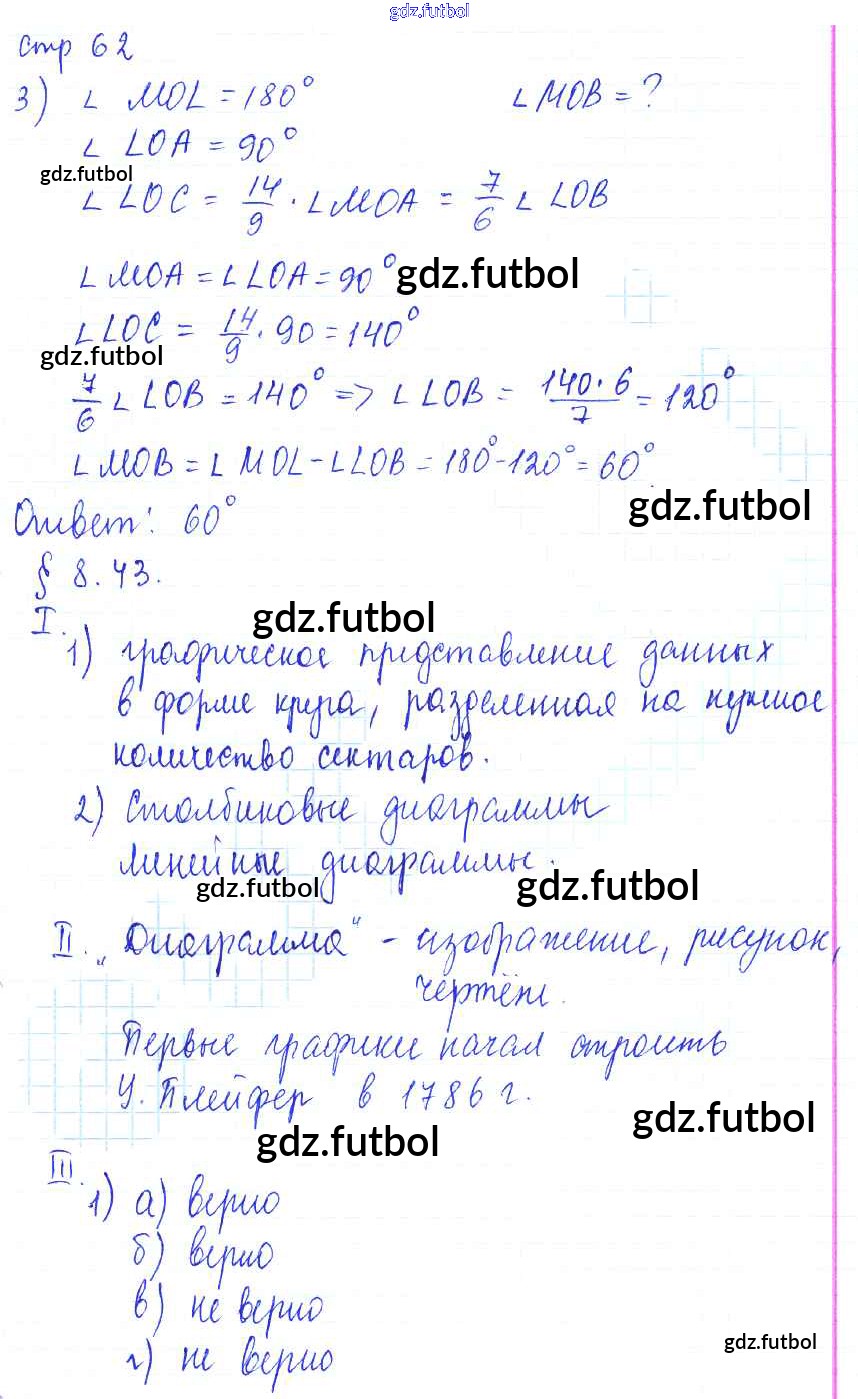 gdz.futbol
стр 62
3) ∠ MOL = 180° ∠ MOB = ?
∠ LOA = 90°
gdz.futbol
∠ LOC = 14/9 · ∠ MOA = 7/6 ∠ LOB
∠ MOA = ∠ LOA = 90° gdz.futbol
∠ LOC = 14/9 · 90 = 140°
gdz.futbol
7/6 ∠ LOB = 140° => ∠ LOB = 140·6/7 = 120°
∠ MOB = ∠ MOL - ∠LOB = 180° - 120° = 60°
gdz.futbol
Ответ: 60°
§ 8.43.
gdz.futbol
I. 1) графическое представление данных
в форме круга, разделенная на нужное
количество сектаров.
2) Столбиковые диаграммы
линейные диаграммы.
gdz.futbol gdz.futbol
II. „Диаграмма“ - изображение, рисунок,
чертёж.
Первые графики начал строить
У. Плейфер в 1786 г.
gdz.futbol
gdz.futbol
III.
1) а) верно
б) верно
в) не верно
gdz.futbol
г) не верно